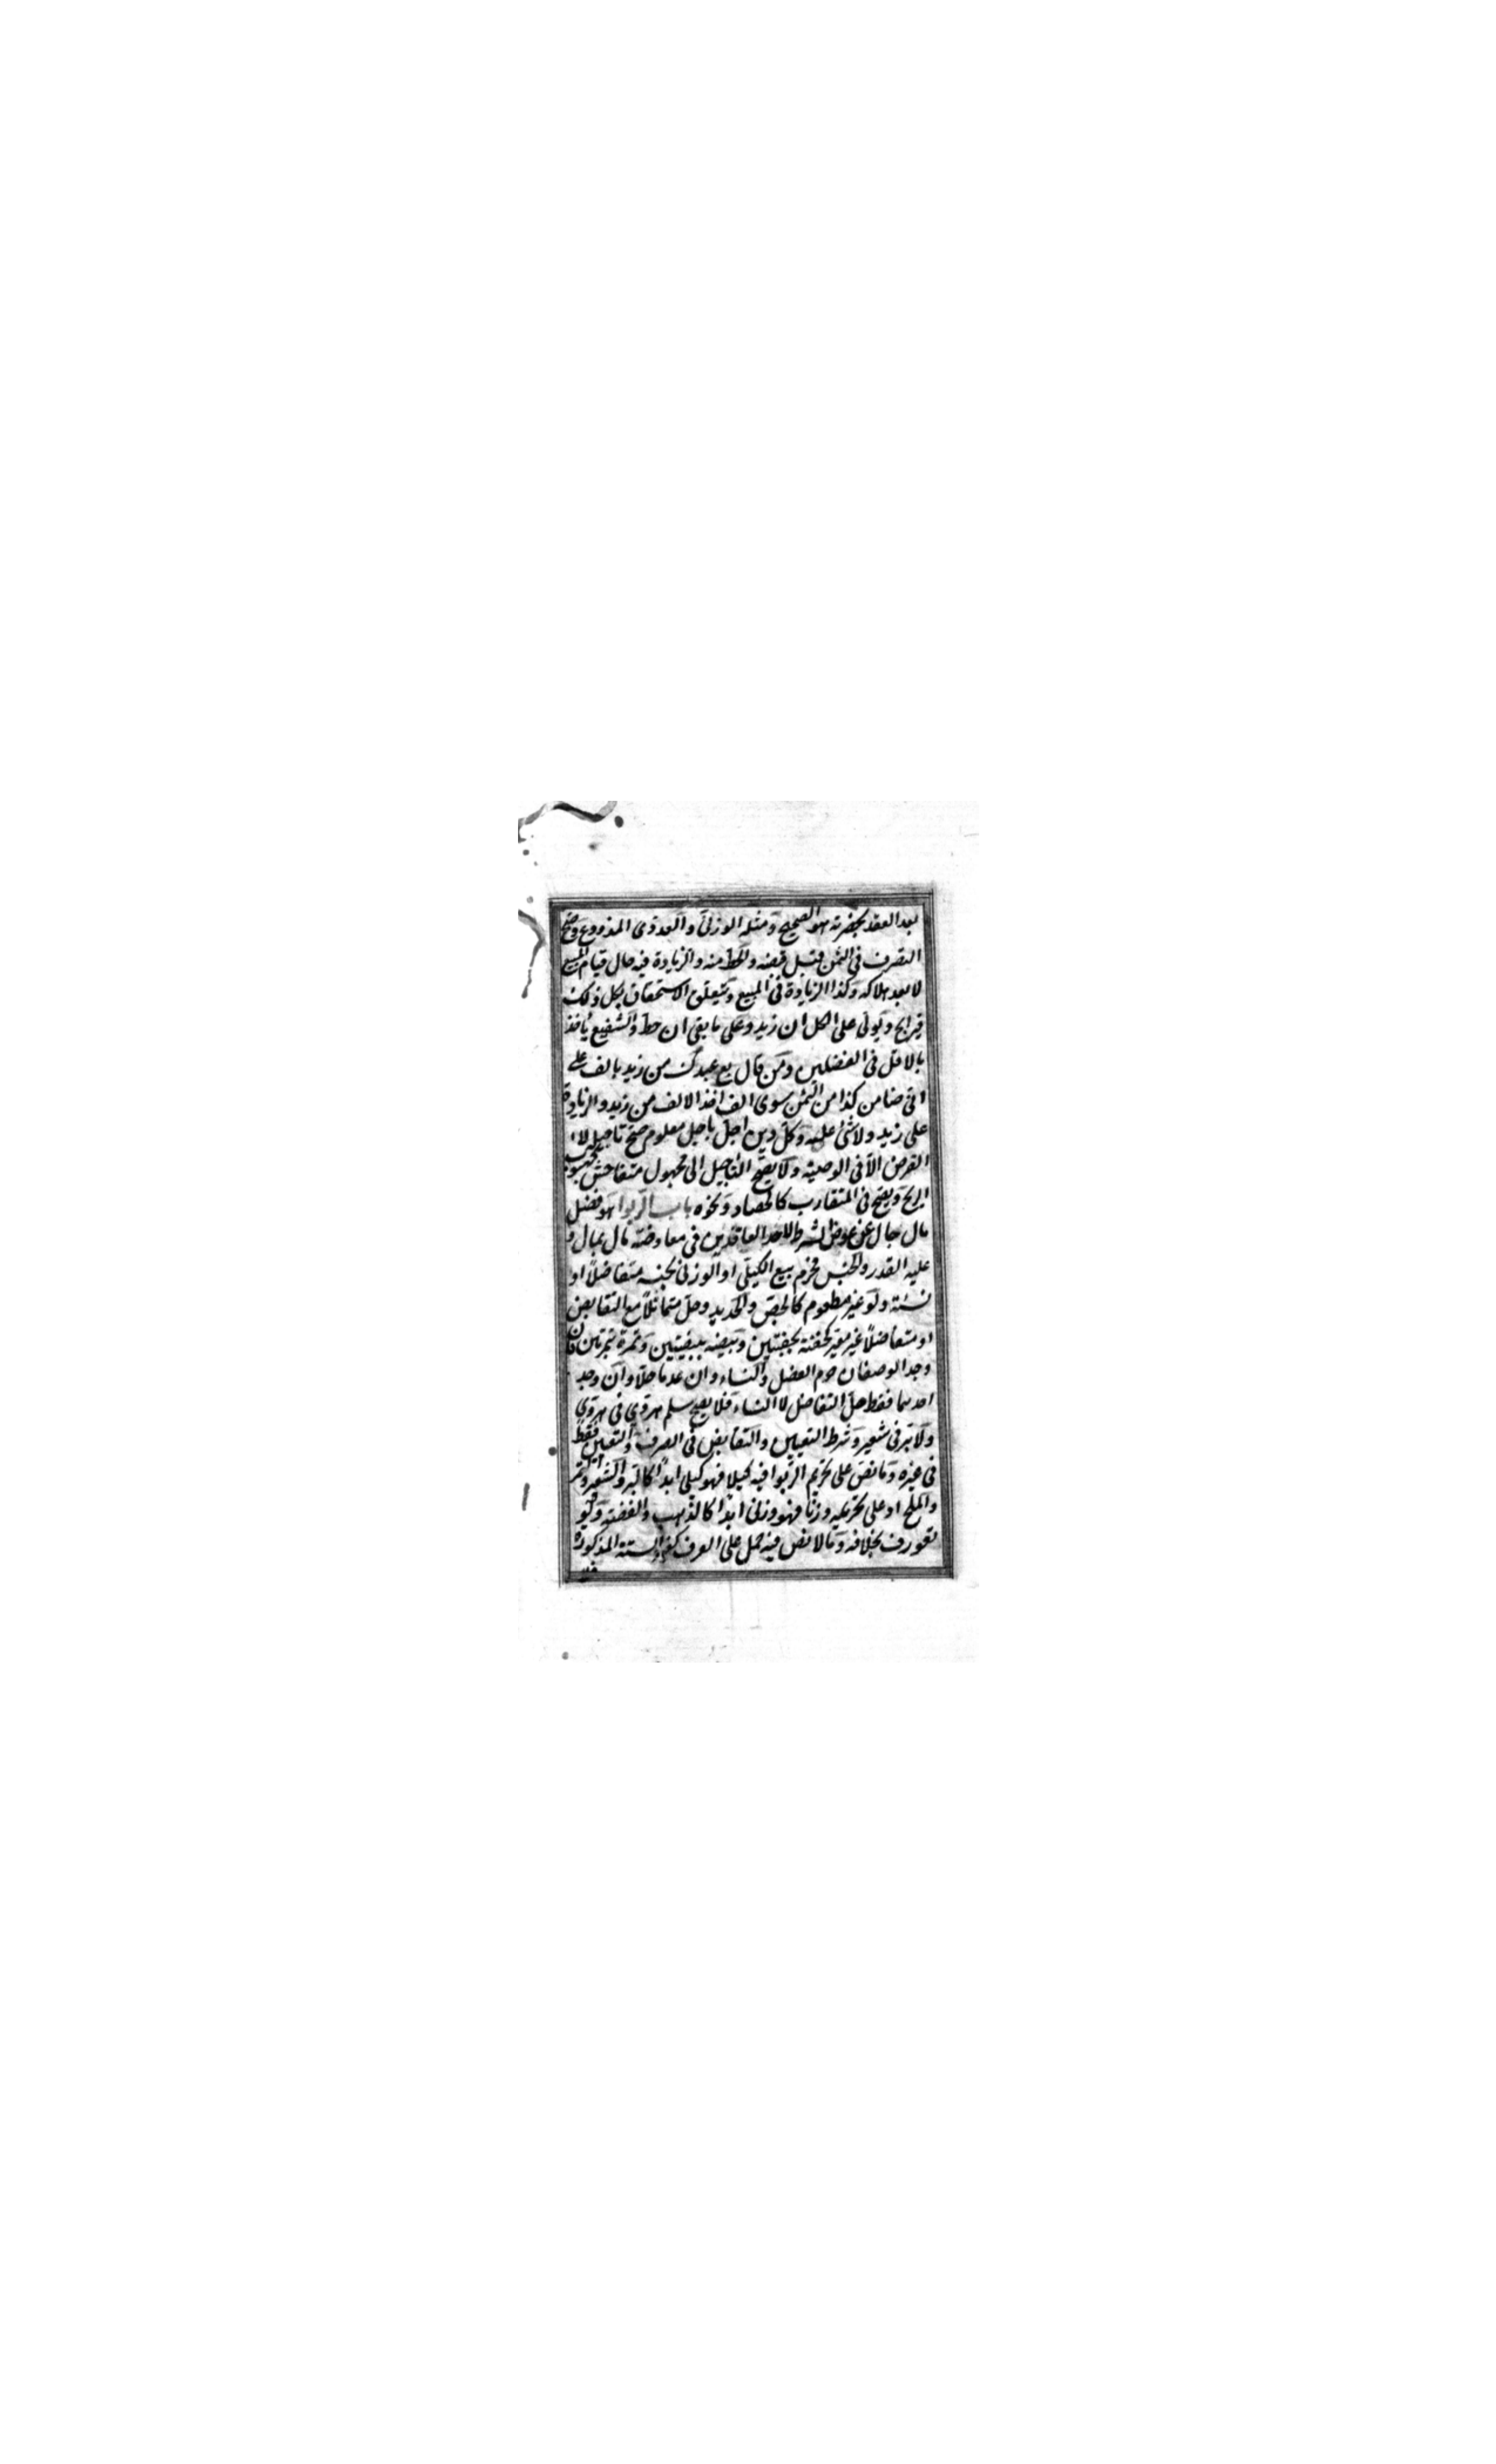 بعد العقد بحضرته هو الصحيح ومثله الوزني والعددي الغير المذروع وصح
التصرف في الثمن قبل قبضه والحط منه والزيادة فيه حال قيام المبيع
لا بعد هلاكه وكذا الزيادة في المبيع ويتعلق الاستحقاق بكل ذلك
فيرابح ويولى على الكل ان زيد وعلى ما بقي ان حط والشفيع يأخذ
بالاقل في الفصلين ومن قال بع عبدك من زيد بالف على
اني ضامن كذا من الثمن سوى الف اخذ الالف من زيد والزيادة
على زيد ولا شئ عليه وكل دين اجل باجل معلوم صح تأجيله الا
القرض الا في الوصية ولا يصح التأجيل الى مجهول متفاحش كهبوب
الريح ويصح في المتقارب كالحصاد ونحوه باب الربوا هو فضل
مال خال عن عوض شرط لاحد العاقدين في معاوضة مال بمال و
علته القدر والجنس فحرم بيع الكيلي او الوزني بجنسه متفاضلا او
نسئة ولو غير مطعوم كالجص والحديد وحل متماثلا مع التقابض
او متفاضلا غير معير كحفنة بحفنتين وبيضة ببيضتين وتمرة بتمرتين فان
وجد الوصفان حرم الفضل والنساء وان عدما حلا وان وجد
احدهما فقط حل التفاضل لا النساء فلا يصح سلم هروي في هروي
ولا بر في شعير وشرط التعيين والتقابض في الصرف والتعيين فقط
في غيره وما نص على تحريم الربوا فيه كيلا فهو كيلي ابدا كالبر والشعير والتمر
والملح او على تحريمه وزنا فهو وزني ابدا كالذهب والفضة ولو
تعورف بخلافه وما لا نص فيه حمل على العرف كغير الستة المذكورة